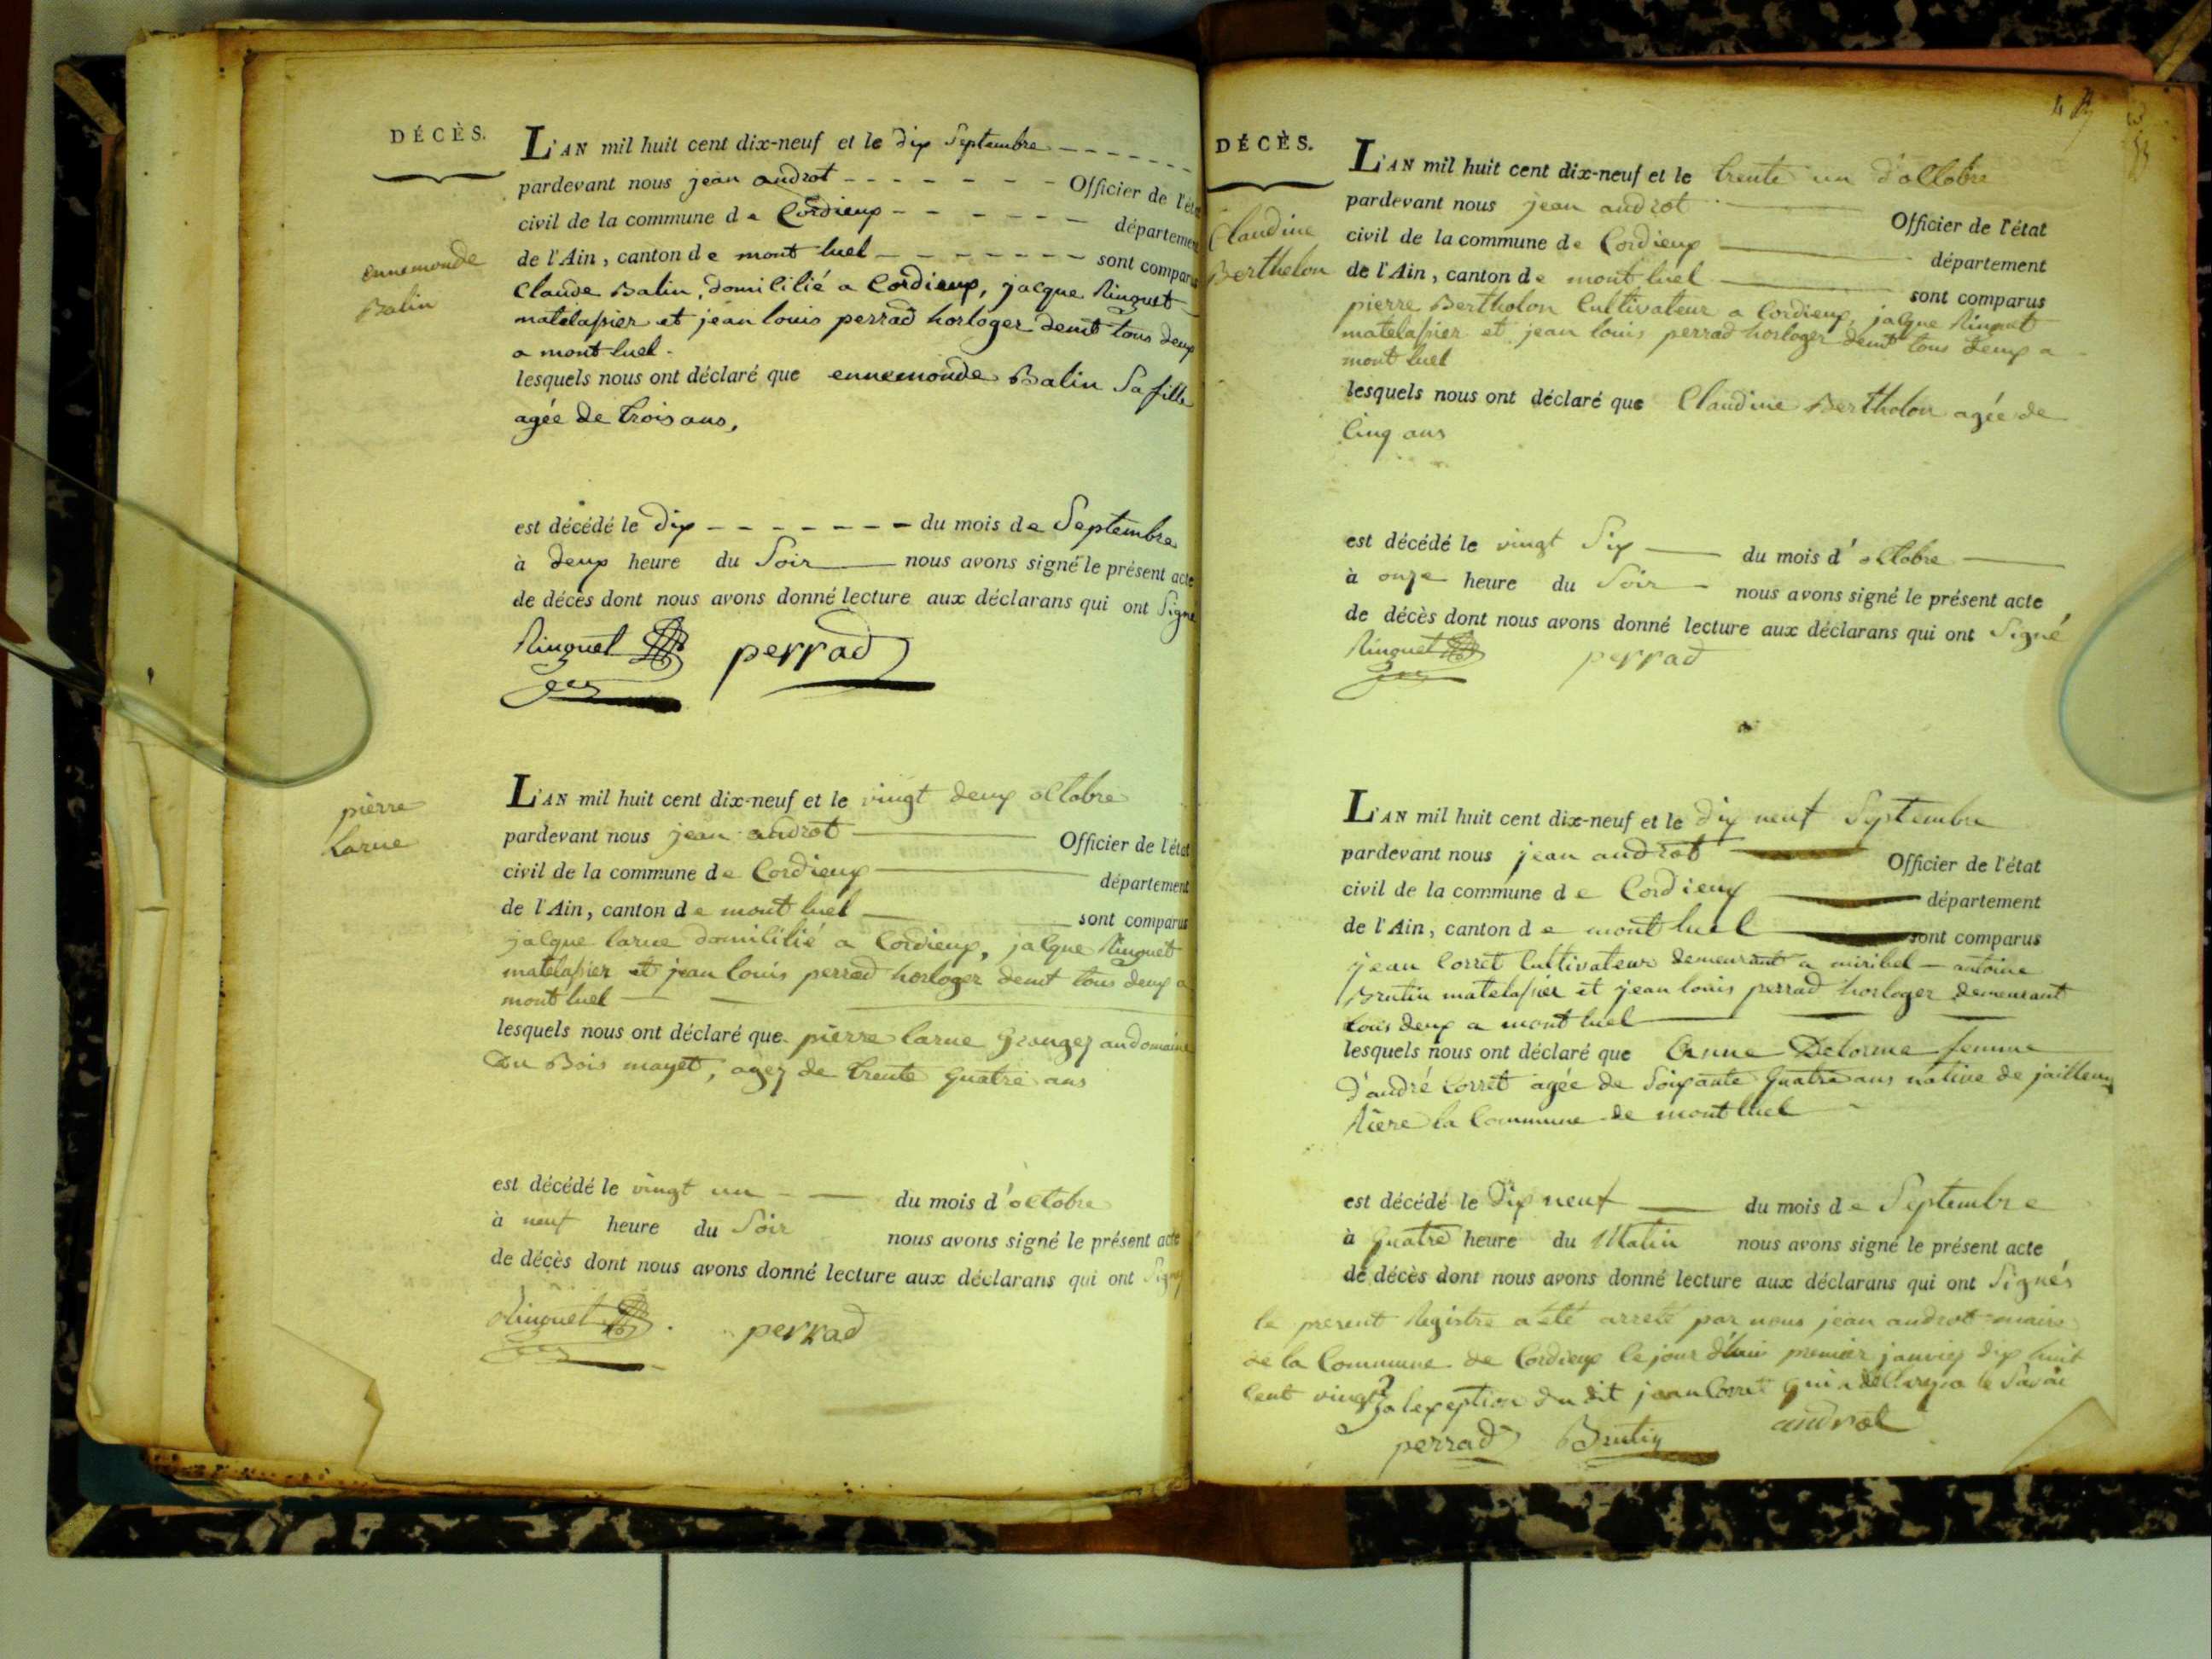 DÉCÈS.
L'AN mil huit cent dix-neuf et le dix Septembre
pardevant nous jean androt Officier de l'état
civil de la commune de Cordieux département
de l'Ain, canton de mont luel sont comparus
ennemonde
Balin
Claude Balin, domicilié a Cordieux, jacque Ringuet
matelassier et jean louis perrad horloger demt tous deux
a mont luel
lesquels nous ont déclaré que ennemonde Balin sa fille
agée de trois ans,
est décédé le dix du mois de Septembre
à deux heure du Soir nous avons signé le présent acte
de décès dont nous avons donné lecture aux déclarans qui ont Signé
Ringuet perrad
pierre
larue
L'AN mil huit cent dix-neuf et le vingt deux octobre
pardevant nous jean androt Officier de l'état
civil de la commune de Cordieux département
de l'Ain, canton de mont luel sont comparus
jacque larue domicilié a Cordieux, jacque Ringuet
matelassier et jean louis perrad horloger demt tous deux a
mont luel
lesquels nous ont déclaré que pierre larue granger au domaine
du Bois mayet, agez de trente quatre ans
est décédé le vingt un du mois d'octobre
à neuf heure du Soir nous avons signé le présent acte
de décès dont nous avons donné lecture aux déclarans qui ont
Ringuet perrad
DÉCÈS.
Claudine
Berthelon
L'AN mil huit cent dix-neuf et le trente un d'octobre
pardevant nous jean androt Officier de l'état
civil de la commune de Cordieux département
de l'Ain, canton de mont luel sont comparus
pierre Bertholon Cultivateur a Cordieux, jacque Ringuet
matelassier et jean louis perrad horloger demt tous deux a
mont luel
lesquels nous ont déclaré que Claudine Bertholon agée de
Cinq ans
est décédé le vingt Six du mois d'octobre
à onze heure du Soir nous avons signé le présent acte
de décès dont nous avons donné lecture aux déclarans qui ont Signé
Ringuet perrad
L'AN mil huit cent dix-neuf et le dix neuf Septembre
pardevant nous jean androt Officier de l'état
civil de la commune de Cordieux département
de l'Ain, canton de mont luel sont comparus
jean Corret Cultivateur demeurant a miribel antoine
Brutin matelassier et jean louis perrad horloger demeurant
tous deux a mont luel
lesquels nous ont déclaré que Anne Delorme femme
d'andré Corret agée de Soixante quatre ans native de jailleux
Rière la Commune de mont luel
est décédé le Dix neuf du mois de Septembre
à quatre heure du Matin nous avons signé le présent acte
de décès dont nous avons donné lecture aux déclarans qui ont Signés
le present Registre a été arreté par nous jean androt maire
de la Commune de Cordieux le jour d'hui premier janvier dix huit
Cent vingt a lexeption du dit jean Corret qui a
perrad Brutin androt